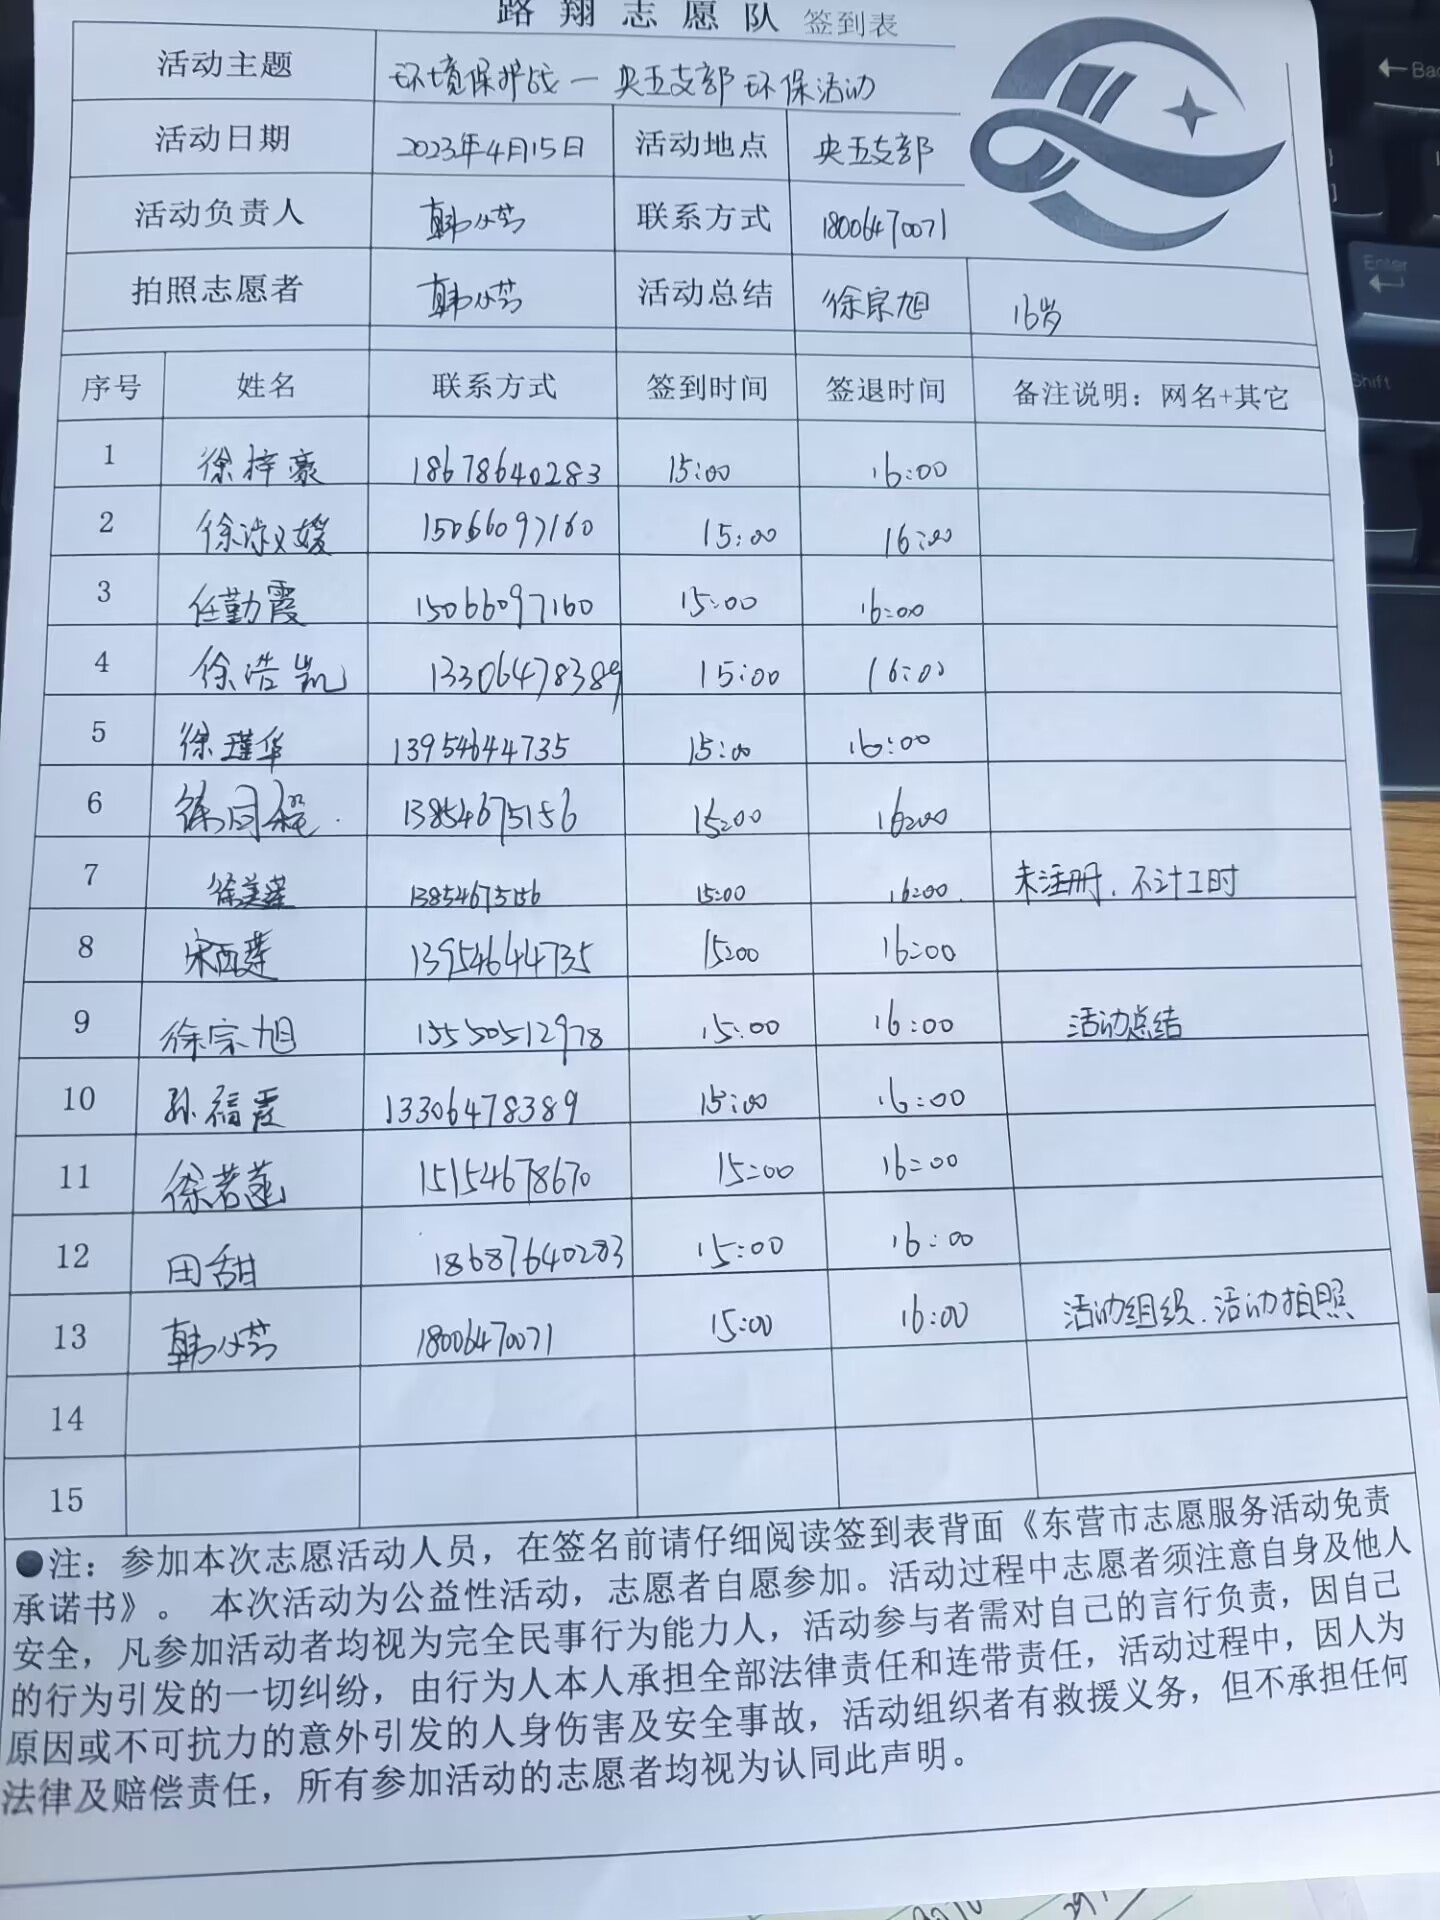 路翔志愿队 签到表
活动主题 环境保护战一央五支部环保活动
活动日期 2023年4月15日 活动地点 央五支部
活动负责人 韩 芳 联系方式 18006470071
拍照志愿者 韩 芳 活动总结 徐宗旭 16岁
序号 姓名 联系方式 签到时间 签退时间 备注说明：网名+其它
1 徐梓豪 18678640283 15:00 16:00
2 徐淑媛 15066097160 15:00 16:00
3 任勤霞 15066097160 15:00 16:00
4 徐浩凯 13306478389 15:00 16:00
5 徐瑾华 13954644735 15:00 16:00
6 徐同 13854675156 15:00 16:00
7 徐美莲 13854675156 15:00 16:00. 未注册、不计工时
8 宋西莲 13954644735 15:00 16:00
9 徐宗旭 15550512978 15:00 16:00 活动总结
10 孙福霞 13306478389 15:00 16:00
11 徐若菡 15154678670 15:00 16:00
12 田甜 18687640283 15:00 16:00
13 韩 芳 18006470071 15:00 16:00 活动组织、活动拍照
14
15
●注：参加本次志愿活动人员，在签名前请仔细阅读签到表背面《东营市志愿服务活动免责
承诺书》。 本次活动为公益性活动，志愿者自愿参加。活动过程中志愿者须注意自身及他人
安全，凡参加活动者均视为完全民事行为能力人，活动参与者需对自己的言行负责，因自己
的行为引发的一切纠纷，由行为人本人承担全部法律责任和连带责任，活动过程中，因人为
原因或不可抗力的意外引发的人身伤害及安全事故，活动组织者有救援义务，但不承担任何
法律及赔偿责任，所有参加活动的志愿者均视为认同此声明。
Enter
Shift